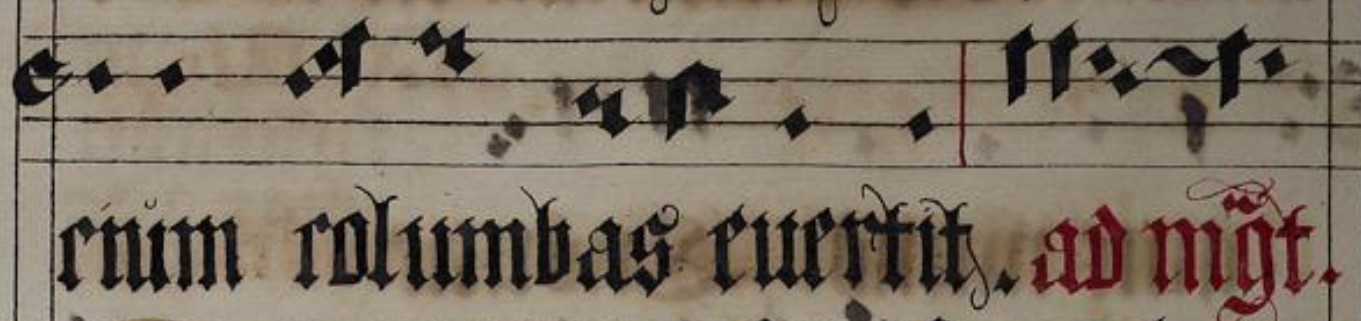 cium columbas euertit. ad mg̃t.